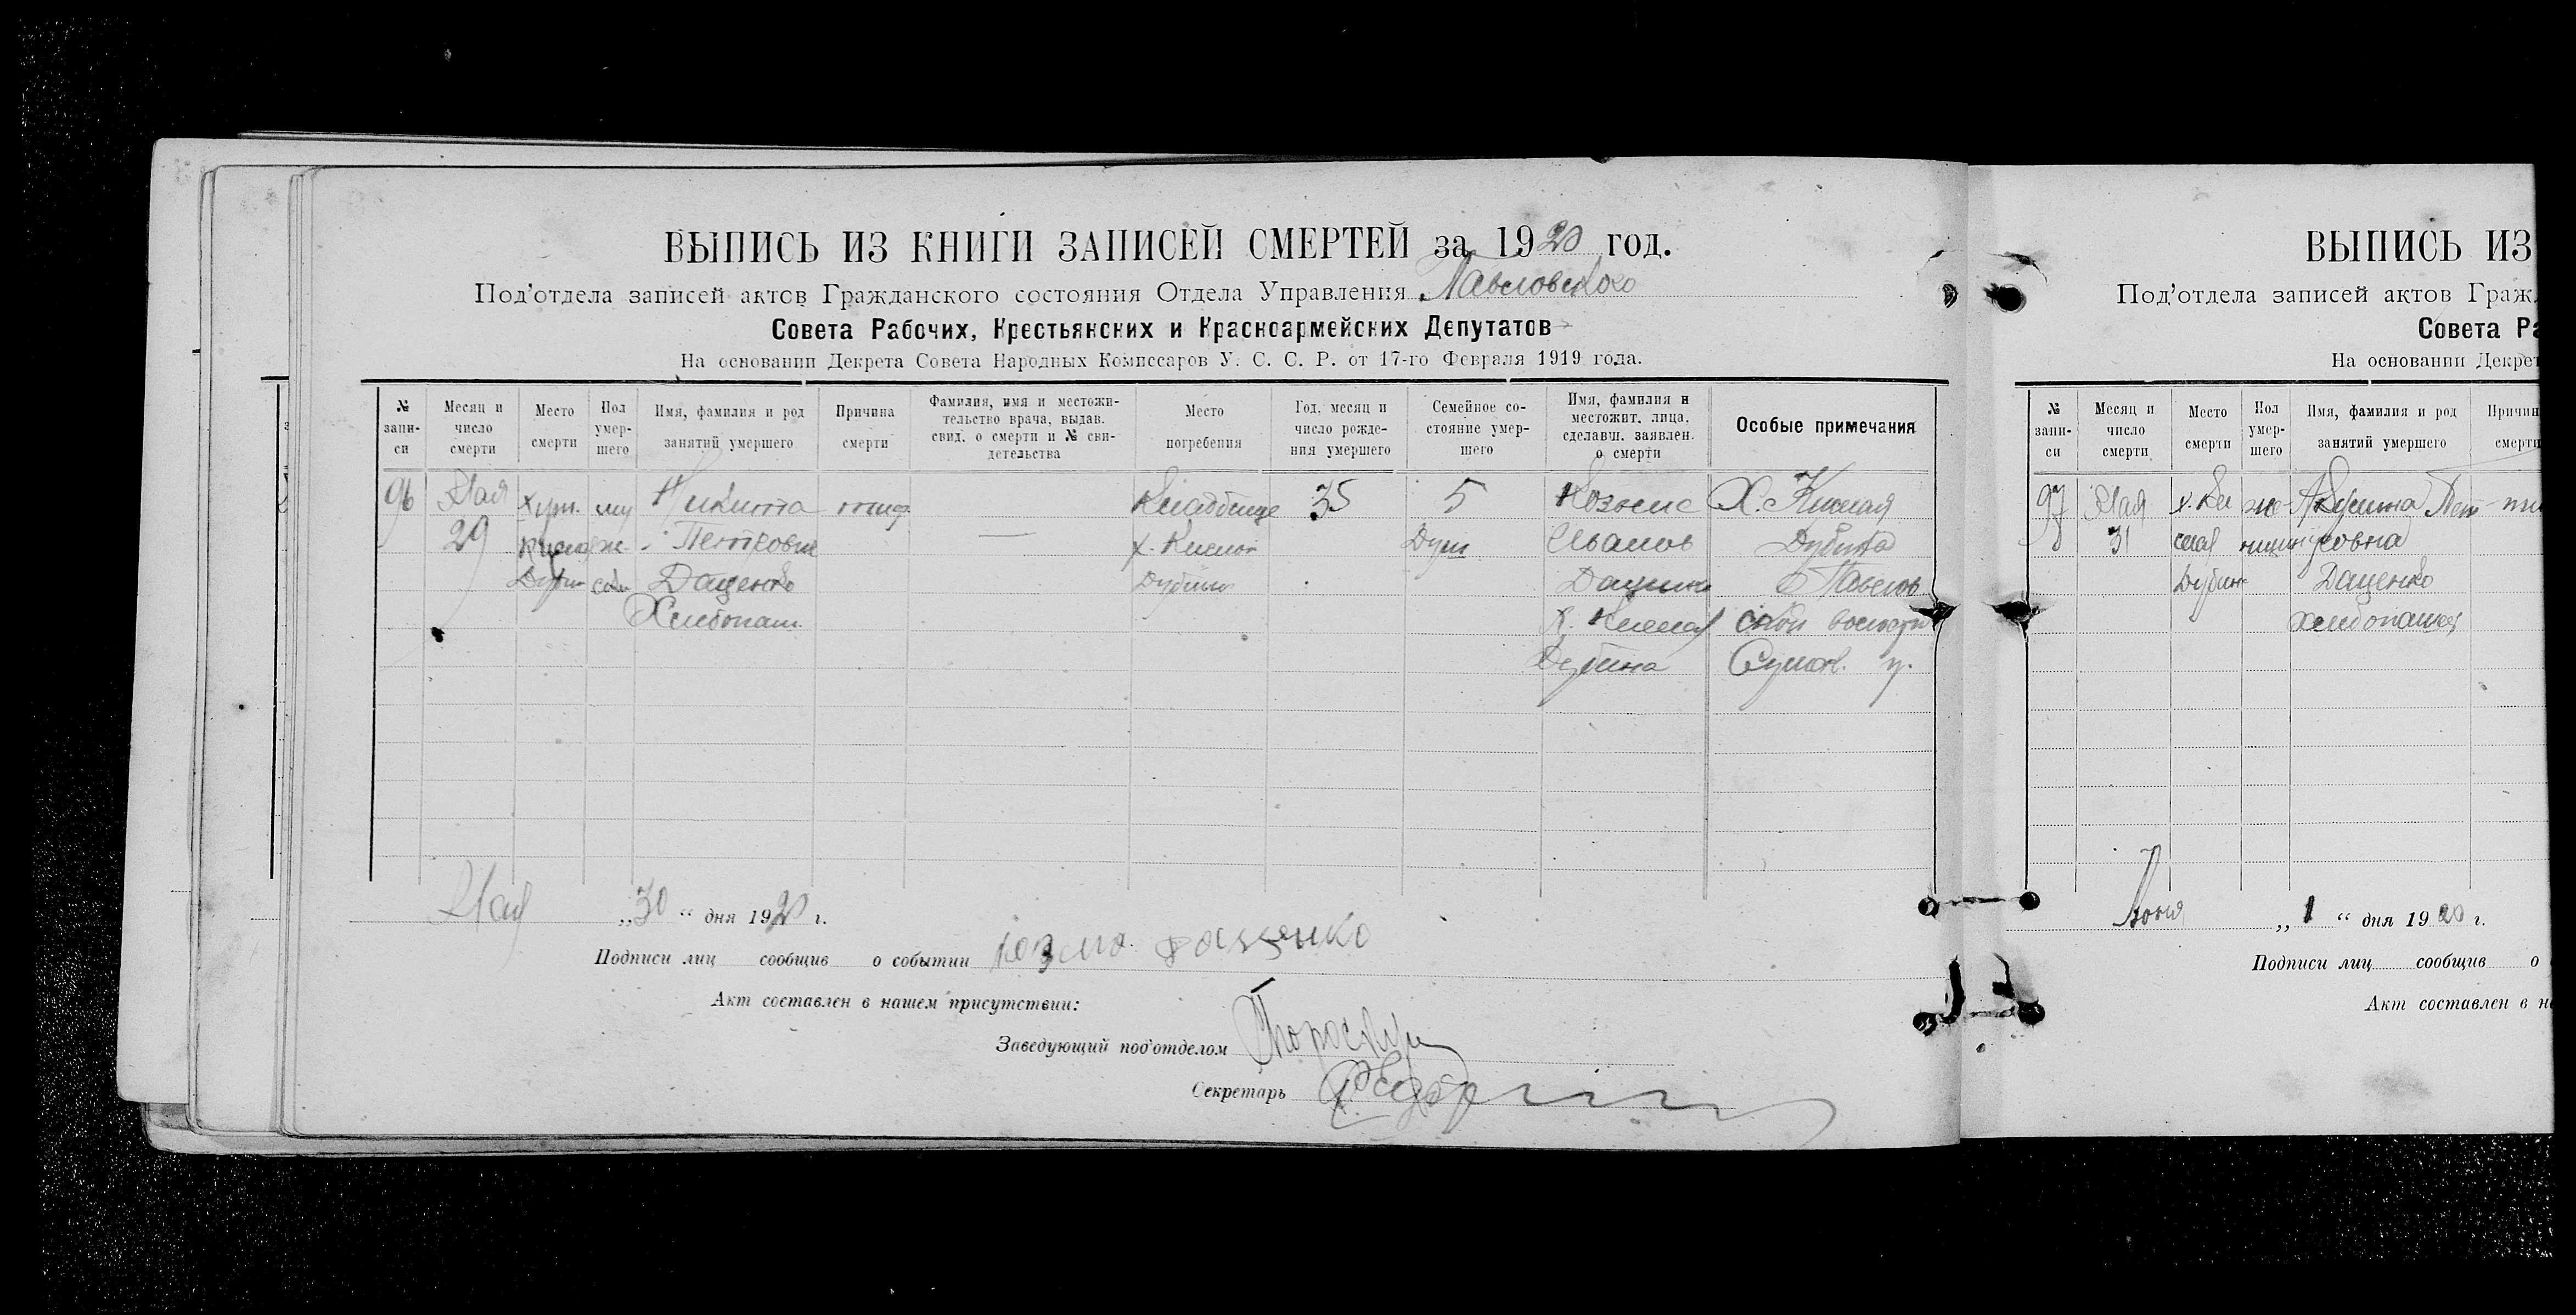 ВЫПИСЬ ИЗ КНИГИ ЗАПИСЕЙ СМЕРТЕЙ за 1920 год.
Под'отдела записей актов Гражданского состояния Отдела Управления Павловского
Совета Рабочих, Крестьянских и Красноармейских Депутатов
На основании Декрета Совета Народных Комиссаров У. С. С. Р. от 17-го Февраля 1919 года.
№ запи-си
Месяц и число смерти
Место смерти
Пол умер-шего
Имя, фамилия и род занятий умершего
Причина смерти
Фамилия, имя и местожи-тельство врача, выдав. свид. о смерти и № сви-детельства
Место погребения
Год, месяц и число рожде-ния умершего
Семейное со-стояние умер-шего
Имя, фамилия и местожит. лица, сделавш. заявлен. о смерти
Особые примечания
96 Мая Хут. Никита тиф — Кладбище 35 5 Козьма Х. Кислая
29 Петрович х. Кислой Душ Иванов Дубина
Даценко Дубины Даценко Павлов
Хлебопаш. х. Кислая ской волости
Дубина Сумск. у.
Мая „30“ дня 1920 г.
Подписи лиц сообщив о событии козма даценко
Акт составлен в нашем присутствии:
Заведующий под'отделом
Секретарь
ВЫПИСЬ ИЗ
Под'отдела записей актов Гражд
Совета Ра
На основании Декрет
№ запи-си
Месяц и число смерти
Место смерти
Пол умер-шего
Имя, фамилия и род занятий умершего
Причин смерти
97 Мая х. Ки же Пет
31 слая нщин ровна
Дубин Даценко
хлебопашец
Июня „1“ дня 1920 г.
Подписи лиц сообщив о
Акт составлен в н